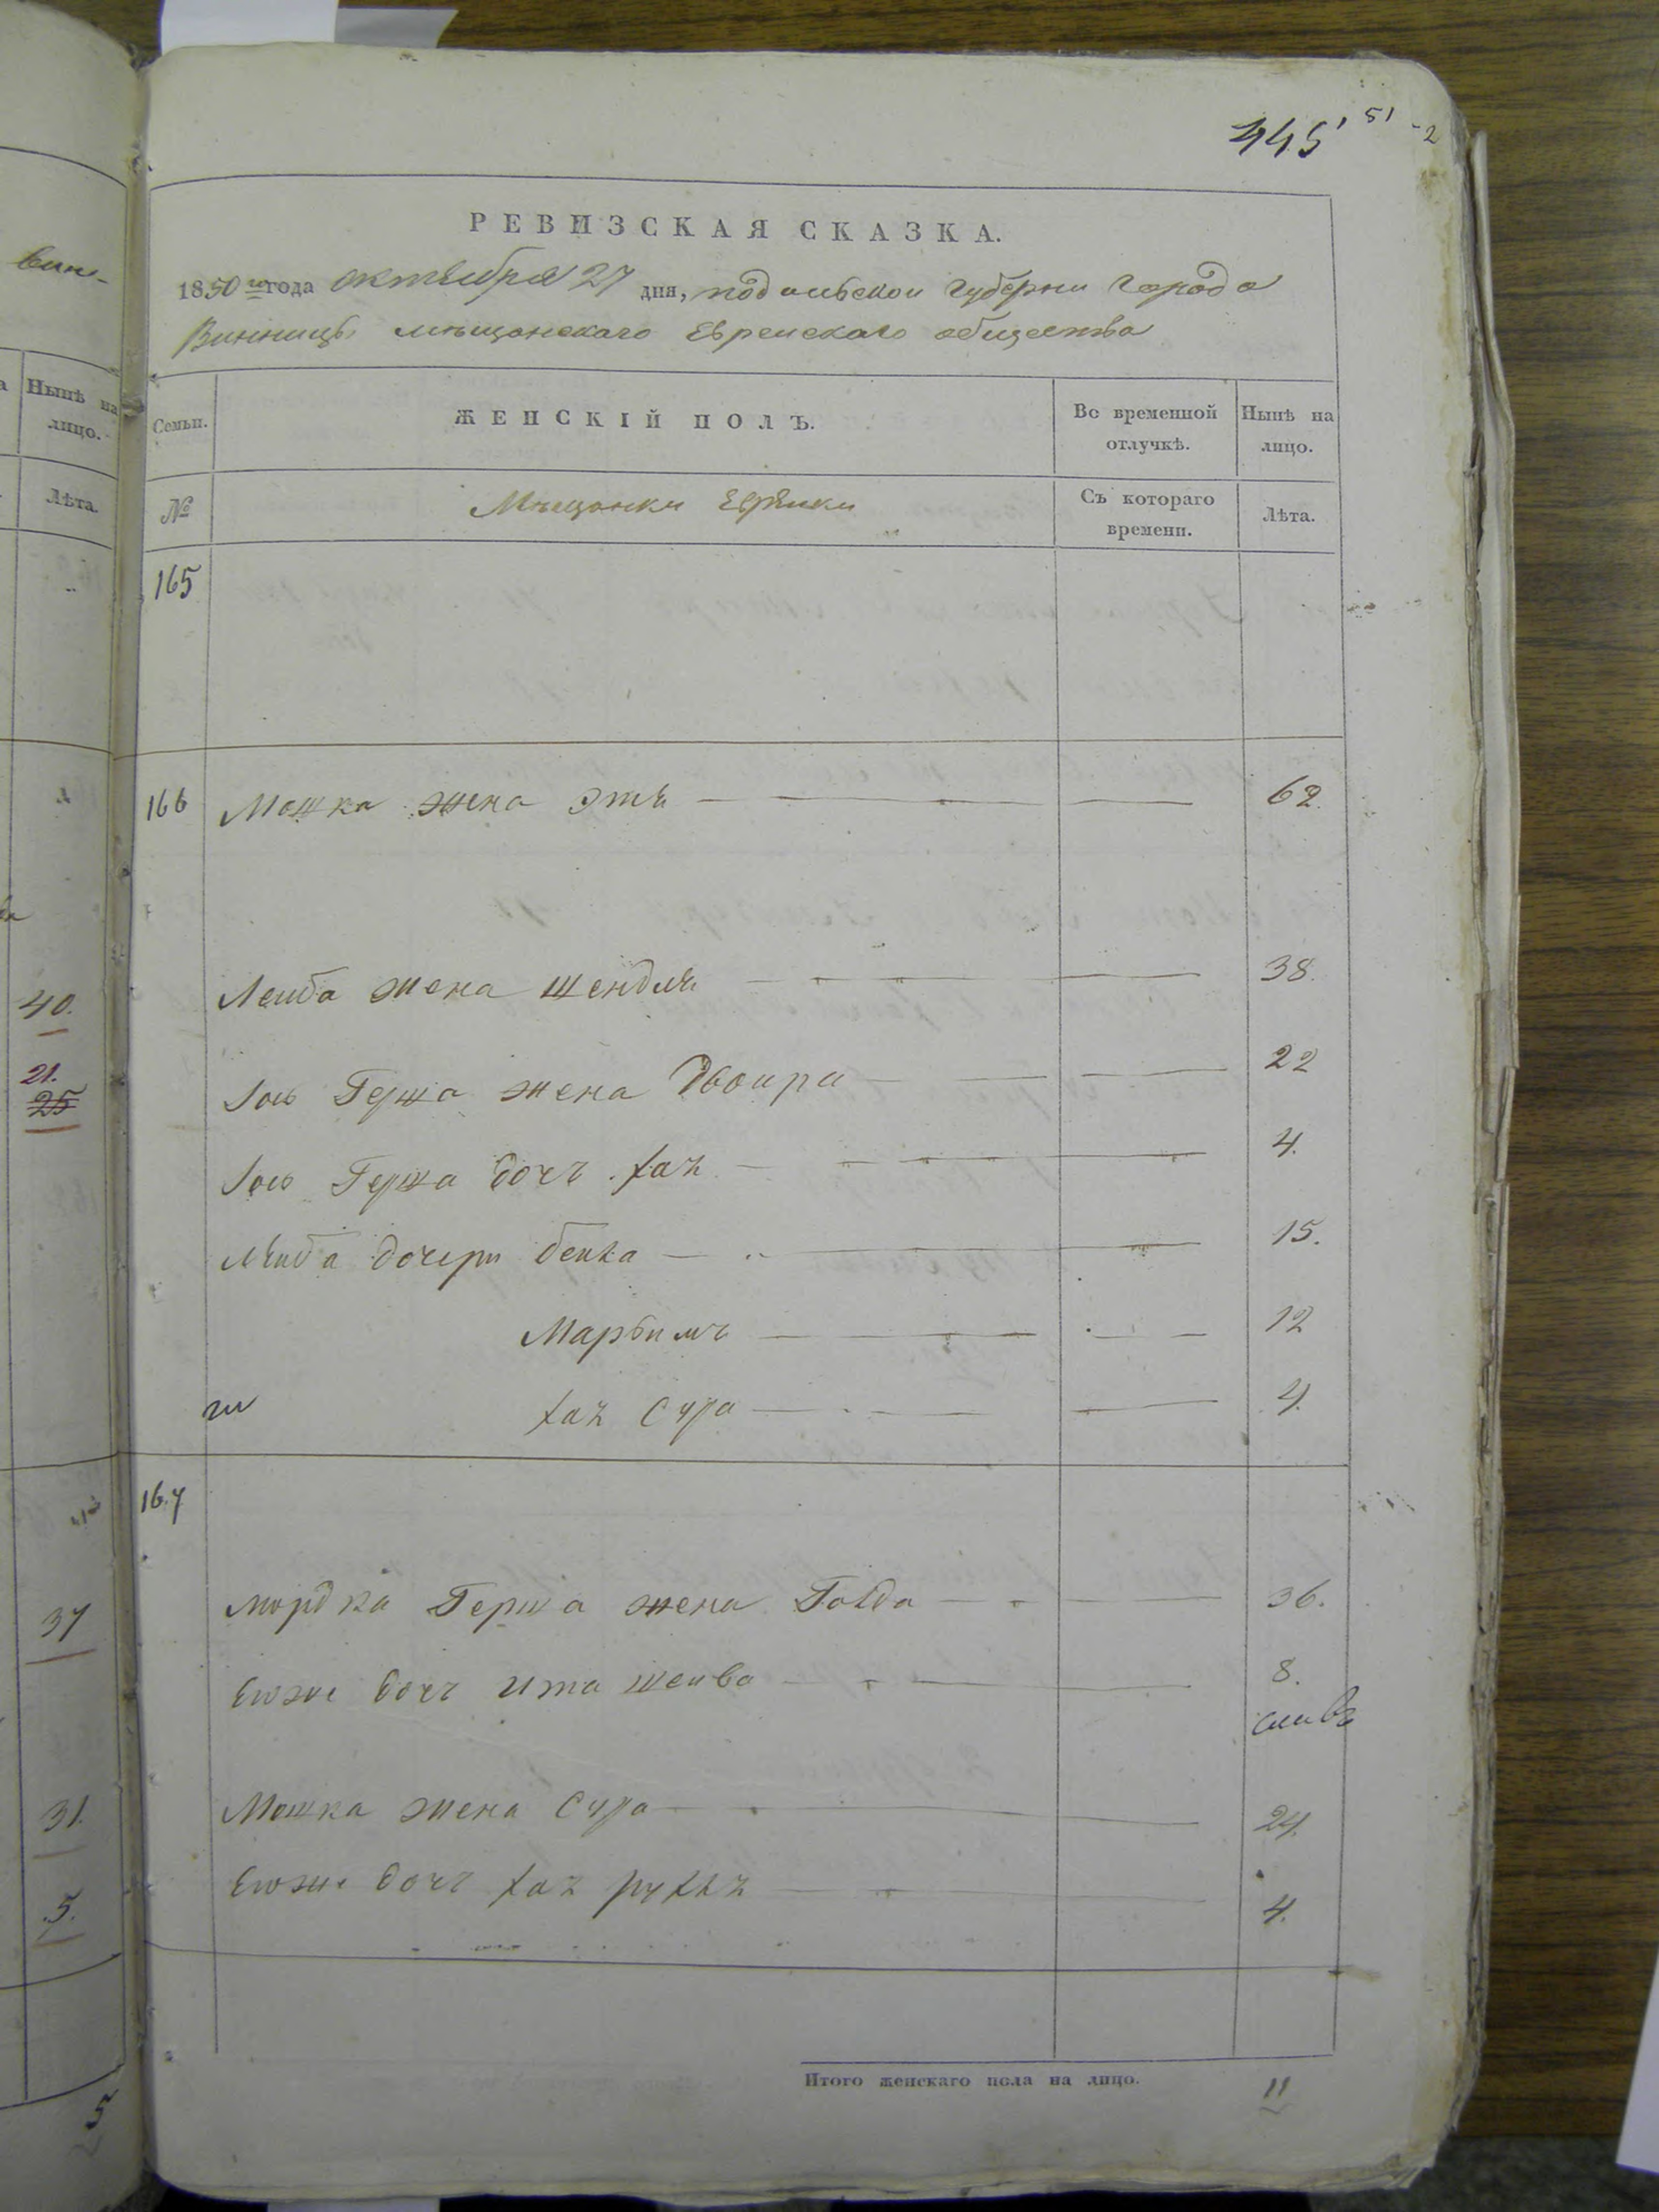 445 51 -2
РЕВИЗСКАЯ СКАЗКА.
1850 го года октября 27 дня, подольской губерни города
Винницы мѣщанскаго Еврейскаго общества
Семьи.
ЖЕНСКІЙ ПОЛЪ.
Во временной отлучкѣ.
Нынѣ на лицо.
№
Мѣщанки Еврѣйки
Съ котораго времени.
Лѣта.
165
166 Мошка жена Этя 62.
Лейба жена Шендля 38.
Герша жена Двойра 22
Герша дочь Хая 4.
Лейба дочери Бейла 15.
12
Хая Сура 4.
167
Мордка Герша жена Голда 36.
Егоже дочь Ита Шейва 8.
Мошка жена Сура 24.
Егоже дочь Хая Рухля 4.
Итого женскаго пола на лицо. 11
вин-
Нынѣ на лицо.
Лѣта.
40.
21.
25
37
31.
5.
5